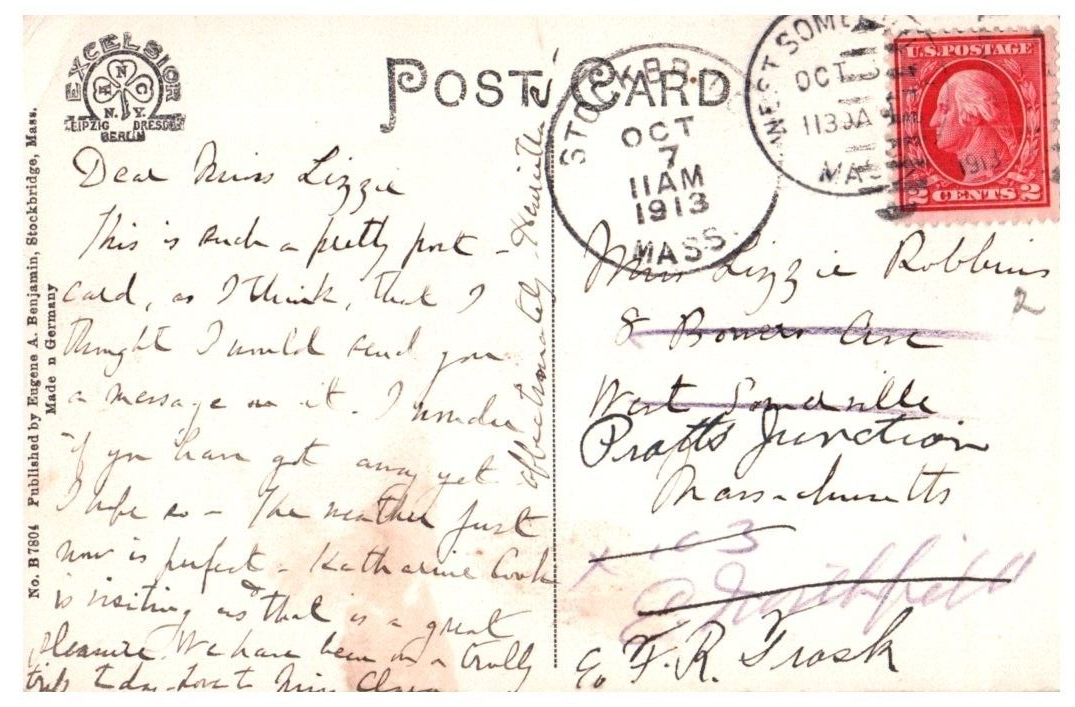 EXCELSIOR
N
H C
N. Y.
LEIPZIG DRESD
BERLIN
POST CARD
No. B 7804 Published by Eugene A. Benjamin, Stockbridge, Mass.
Made n Germany
STOCKBR
OCT
7
11 AM
1913
MASS.
WEST SOME
OCT
1130A
MASS
1913
U.S. POSTAGE
2 CENTS 2
Dear Miss Lizzie
This is such a pretty post-
card, as I think, that I
thought I would send you
a message on it. I wonder
if you have got away yet
I hope so - The weather just
now is perfect - Katharine Cook
is visiting us & that is a great
pleasure. We have been on a trolly
trip today - Love to Miss Clara
affectionately
Miss Lizzie Robbins
2
8 Bowers Ave
West Somerville
Pratts Junction
Massachusetts
3
Northfield
c/o F. R. Trask